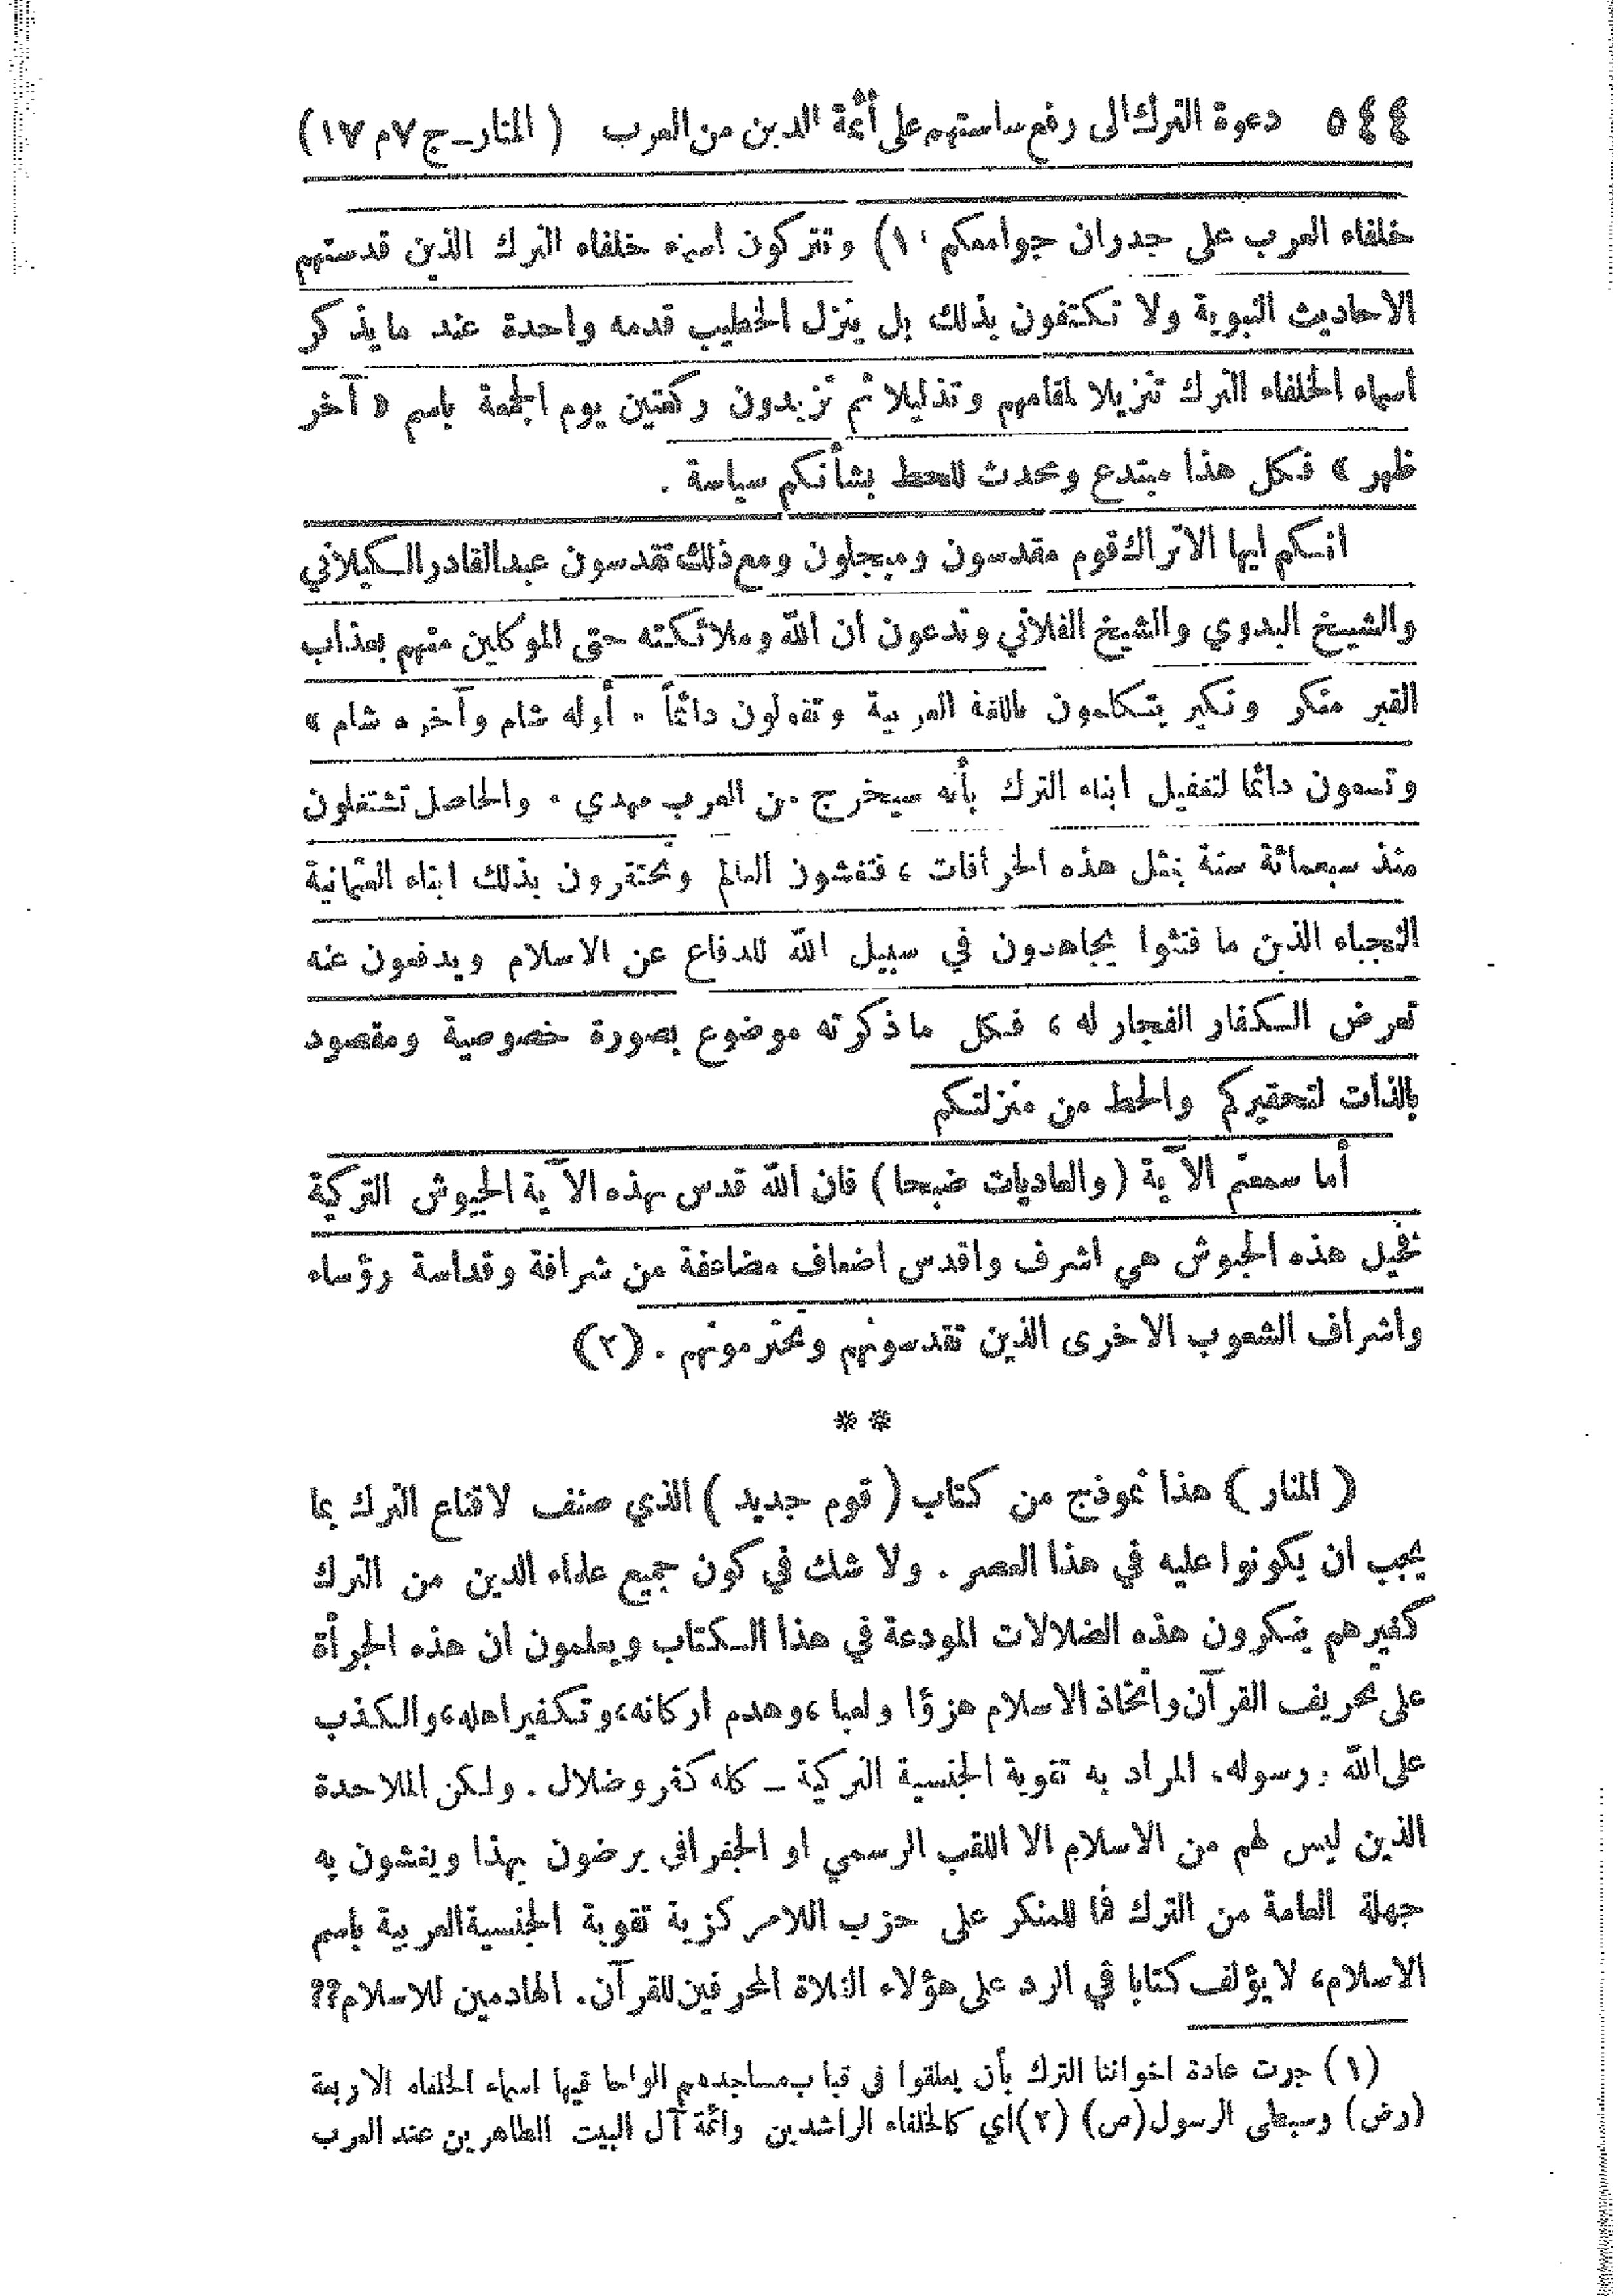 ٥٤٤ دعوة الترك الى رفع ساستهم على أئمة الدين من العرب (المنار ـ ج ٧ م ١٧)
خلفاء العرب على جدران جوامعكم (١) وتتركون اسماء خلفاء الترك الذين قدستهم
الاحاديث النبوية ولا تكتفون بذلك بل ينزل الخطيب قدمه واحدة عند ما يذكر
اسماء الخلفاء الترك تنزيلا لمقامهم وتذليلا ثم تزيدون ركعتين يوم الجمعة باسم « آخر
ظهر » فكل هذا مبتدع ومحدث للحط بشأنكم سياسة .
انكم ايها الاتراك قوم مقدسون ومبجلون ومع ذلك تقدسون عبد القادر الكيلاني
والشيخ البدوي والشيخ الفلاني وتدعون ان الله وملائكته حتى الموكلين منهم بعذاب
القبر منكر ونكير يتكلمون باللغة العربية وتقولون دائماً « أوله شام وآخره شام »
وتسعون دائما لتغفيل ابناء الترك بأنه سيخرج من العرب مهدي . والحاصل تشتغلون
منذ سبعمائة سنة بمثل هذه الخرافات ، فتغشون العالم وتحتقرون بذلك ابناء العثمانية
النجباء الذين ما فتئوا يجاهدون في سبيل الله للدفاع عن الاسلام ويدفعون عنه
تعرض الكفار الفجار له ، فكل ما ذكرته موضوع بصورة خصوصية ومقصود
بالذات لتحقيركم والحط من منزلتكم
أما سمعتم الآية (والعاديات ضبحا) فان الله قدس بهذه الآية الجيوش التركية
فخيل هذه الجيوش هي اشرف واقدس اضعاف مضاعفة من شرافة وقداسة رؤساء
واشراف الشعوب الاخرى الذين تقدسونهم وتحترمونهم . (٢)
* *
( المنار ) هذا نموذج من كتاب ( قوم جديد ) الذي صنف لاقناع الترك بما
يجب ان يكونوا عليه في هذا العصر . ولا شك في كون جميع علماء الدين من الترك
كغيرهم ينكرون هذه الضلالات المودعة في هذا الكتاب ويعلمون ان هذه الجرأة
على تحريف القرآن واتخاذ الاسلام هزؤا ولعبا ، وهدم اركانه ، وتكفير اهله ، والكذب
على الله ورسوله، المراد به تقوية الجنسية التركية ـ كله كفر وضلال . ولكن الملاحدة
الذين ليس لهم من الاسلام الا اللقب الرسمي او الجغرافي يرضون بهذا ويغشون به
جهلة العامة من الترك فما للمنكر على حزب اللامركزية تقوية الجنسية العربية باسم
الاسلام ، لا يؤلف كتابا في الرد على هؤلاء الغلاة المحرفين للقرآن. الهادمين للاسلام؟؟
(١) جرت عادة اخواننا الترك بأن يعلقوا في قباب مساجدهم الواحا فيها اسماء الخلفاء الاربعة
(رض) وسبطي الرسول (ص) (٢) اي كالخلفاء الراشدين وائمة آل البيت الطاهرين عند العرب